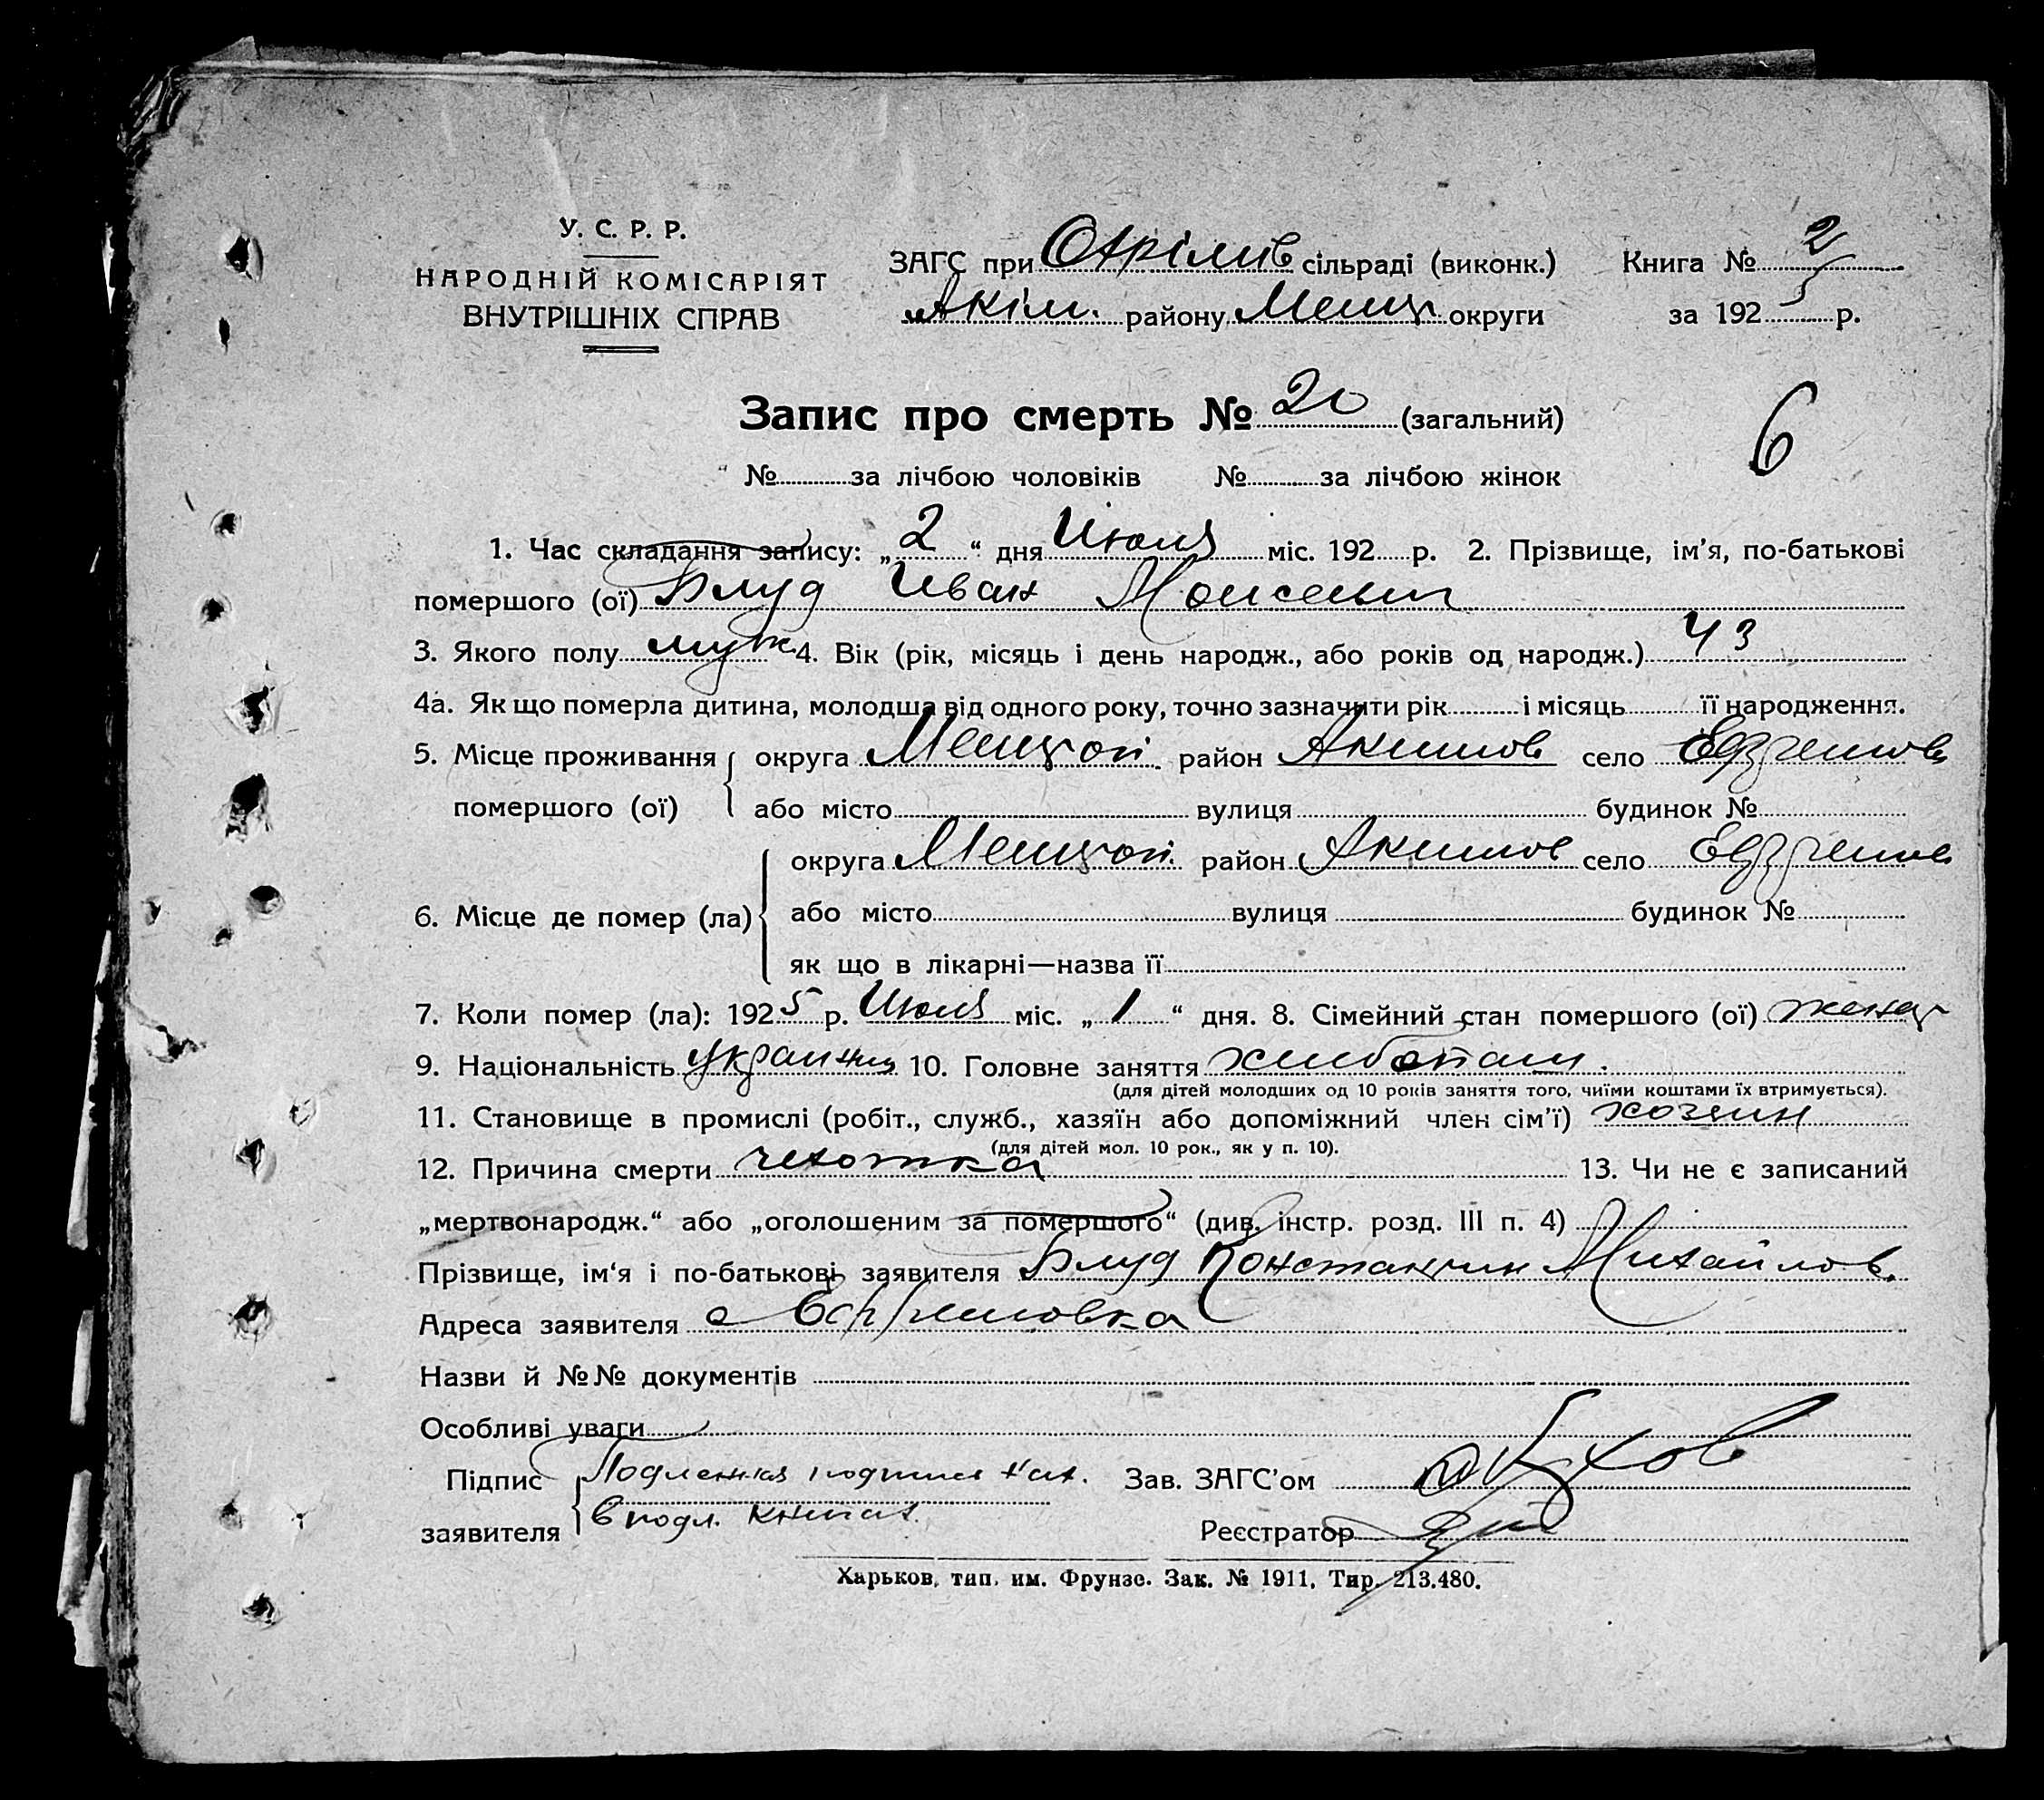 У. С. Р. Р.
НАРОДНІЙ КОМІСАРІЯТ
ВНУТРІШНІХ СПРАВ
ЗАГС при Охрімів сільраді (виконк.) Книга № 2
Акім. району Меліт округи за 1925 р.
Запис про смерть № 20 (загальний)
6
№ за лічбою чоловіків № за лічбою жінок
1. Час складання запису: „2“ дня Июля міс. 192 р. 2. Прізвище, ім'я, по-батькові
помершого (ої) Блуд Иван Моисеевич
3. Якого полу муж 4. Вік (рік, місяць і день народж., або років од народж.) 43
4а. Як що померла дитина, молодша від одного року, точно зазначити рік і місяць її народження.
5. Місце проживання округа Мелитой район Акимов село
помершого (ої) або місто вулиця будинок №
округа Мелитой район Акимов село
6. Місце де помер (ла) або місто вулиця будинок №
як що в лікарні—назва її
7. Коли помер (ла): 1925 р. Июля міс. „1“ дня. 8. Сімейний стан помершого (ої) женат
9. Національність украинец 10. Головне заняття хлибопаш.
(для дітей молодших од 10 років заняття того, чиїми коштами їх втримується).
11. Становище в промислі (робіт., служб., хазяїн або допоміжний член сім'ї) хозяин
(для дітей мол. 10 рок., як у п. 10).
12. Причина смерти чехотка 13. Чи не є записаний
„мертвонародж.“ або „оголошеним за помершого“ (див. інстр. розд. III п. 4)
Прізвище, ім'я і по-батькові заявителя Блуд Константин Михайлов.
Адреса заявителя с
Назви й №№ документів
Особливі уваги
Підпис Подленная подпись Зав. ЗАГС'ом
заявителя в подл. книгах. Реєстратор
Харьков, тип. им. Фрунзе. Зак. № 1911. Тир. 213.480.